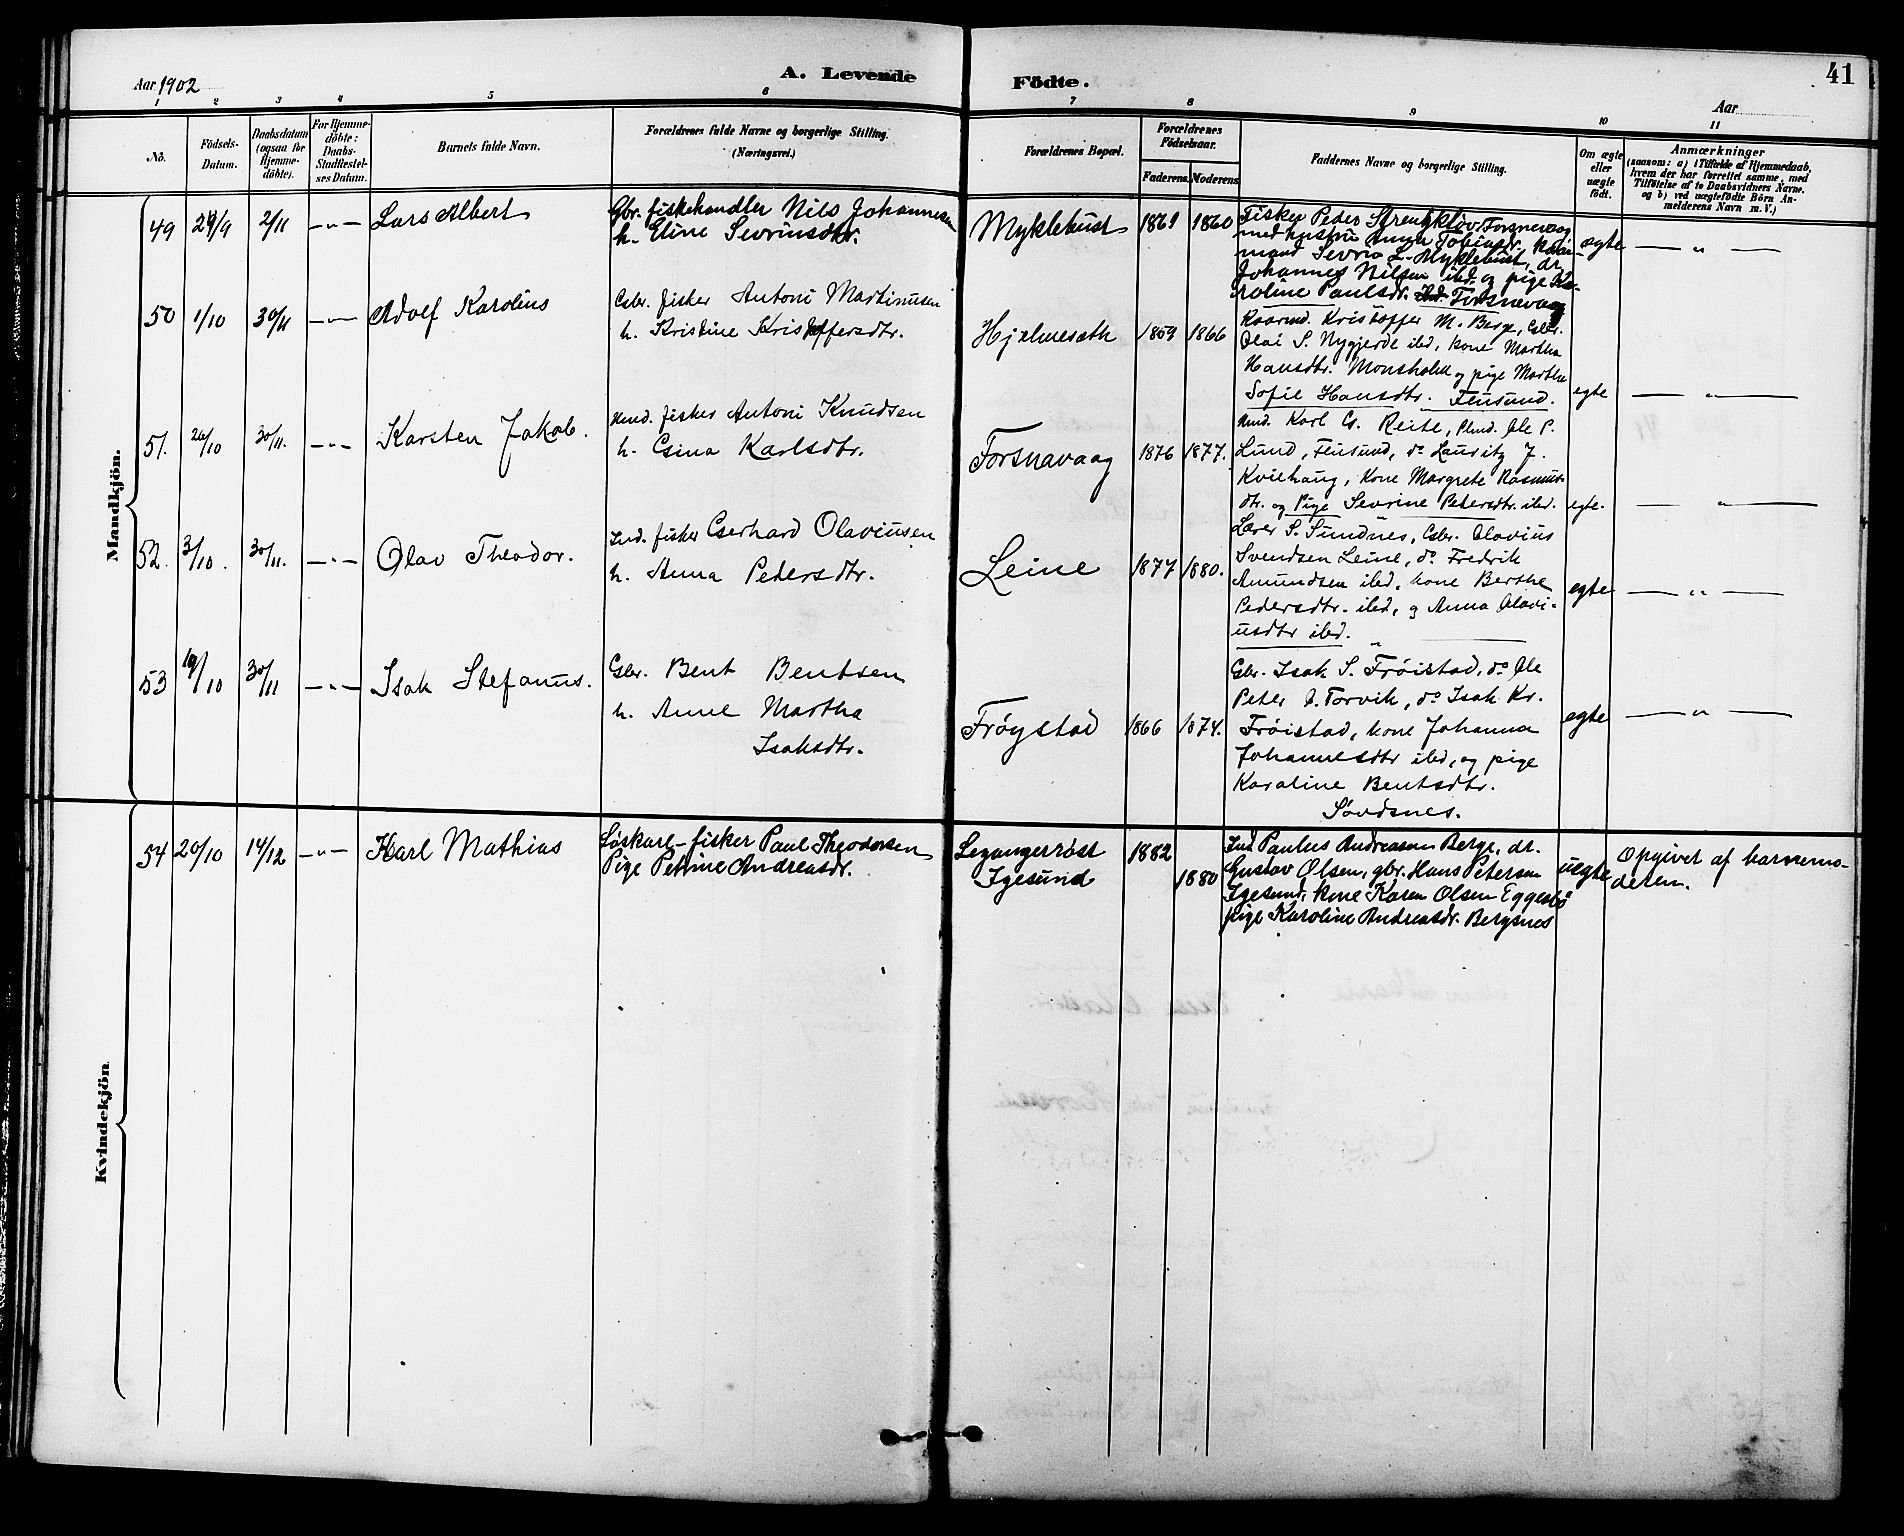 Aar 1902
A. Levende
Födte.
Aar
41
1 2 3 4 5 6 7 8 9 10 11
No.
Födsels-
Datum.
Daabsdatum
(ogsaa for
Hjemme-
döbte).
For Hjemme-
döbte:
Daabs-
Stadfæstel-
ses Datum.
Barnets fulde Navn.
Forældrenes fulde Navne og borgerlige Stilling.
(Næringsvei.)
Forældrenes Bopæl.
Forældrenes
Födselsaar.
Faderens. Moderens.
Faddernes Navne og borgerlige Stilling.
Om ægte
eller
uægte
født.
Anmærkninger
(saasom: a) i Tilfælde af Hjemmedaab,
hvem der har forrettet samme, med
Tilføielse af to Daabsvidners Navne.
og b) ved uægtefødte Børn An-
melderens Navn m. V.)
Mandkjön.
49 29/9 2/11 —"— Lars Albert
Gbr. fiskehandler Nils Johannesen
h. Eline Sevrinsdtr.
Myklebust 1861 1860
Fisker Peder Forsnevaag
med hustru Tobiasdr.
mand Sevrin L. Myklebust, dr.
Johannes Nilsen ibd. og pige Ka-
roline Paulsdr. Forsnevaag
ægte — " —
50 1/10 30/11 —"— Adolf Karolius
Gbr. fisker Antoni Martinusen
h. Kristine Kristoffersdtr.
Hjelmesæth 1859 1866
Kaarmd. Kristoffer M. Berge, Gbr.
Olai S. Nygjerde ibd, kone Martha
Hansdtr. Monsholm og pige Martha
Sofie Hansdtr. Flusund.
egte — " —
51. 20/10 30/11. —"— Karsten Jakob.
Hmd. fisker Antoni Knudsen
h. Gina Karlsdtr.
Forsnavaag 1876 1877.
Hmd. Karl G. Reite, Plmd. Ole P.
Lund, Flusund, do Lauritz J.
Kviehaug, kone Margrete Rasmus-
dtr. og Pige Sevrine Pedersdtr. ibd.
egte. — " —
52. 3/10. 30/11. —"— Olav Theodor.
Ind. fisker Gerhard Olaviusen
h. Anna Pedersdtr.
Leine 1877 1880.
Lærer S. Sundnes, Gbr. Olavius
Svendsen Leine, do Fredrik
Amundsen ibd, kone Berthe
Pedersdtr. ibd, og Anna Olavi-
usdtr ibd.
egte — " —
53 19/10 30/11 —"— Isak Stefanus.
Gbr. Bent Bentsen
h. Anne Martha
Isaksdtr.
Frøystad 1866 1874.
Gbr. Isak S. Frøistad, do Ole
Peter O. Torvik, do Isak Kr.
Frøistad, kone Johanna
Johannesdtr ibd, og pige
Karoline Bentsdtr.
Søvdsnes.
egte — " —
Kvindekjön
54 20/10 14/12 —"— Karl Mathias
Løskarl-fisker Paul Theodorsen
Pige Petrine Andreasdr.
Legangerröst
Igesund
1882
1880
Ind Paulus Andreasen Berge, dr.
Gustav Olsen, gbr. Hans Petersen
Igesund, kone Karen Olsen Eggesbø
pige Karoline Andreasdr. Bergsnes
uegte
Opgivet af barnemo-
deren.